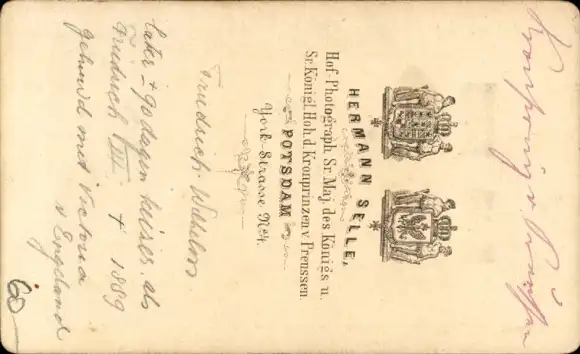 Kronprinz v. Preußen
HERMANN SELLE,
Hof-Photograph Sr. Maj. des Königs u.
Sr. Königl. Hoh. d. Kronprinzen v. Preussen.
POTSDAM
York-Strasse No 4.
Friedrich Wilhelm
later ± 90 dagen keizer als
Friedrich III + 1889
gehuwd met Victoria
v Engeland
60